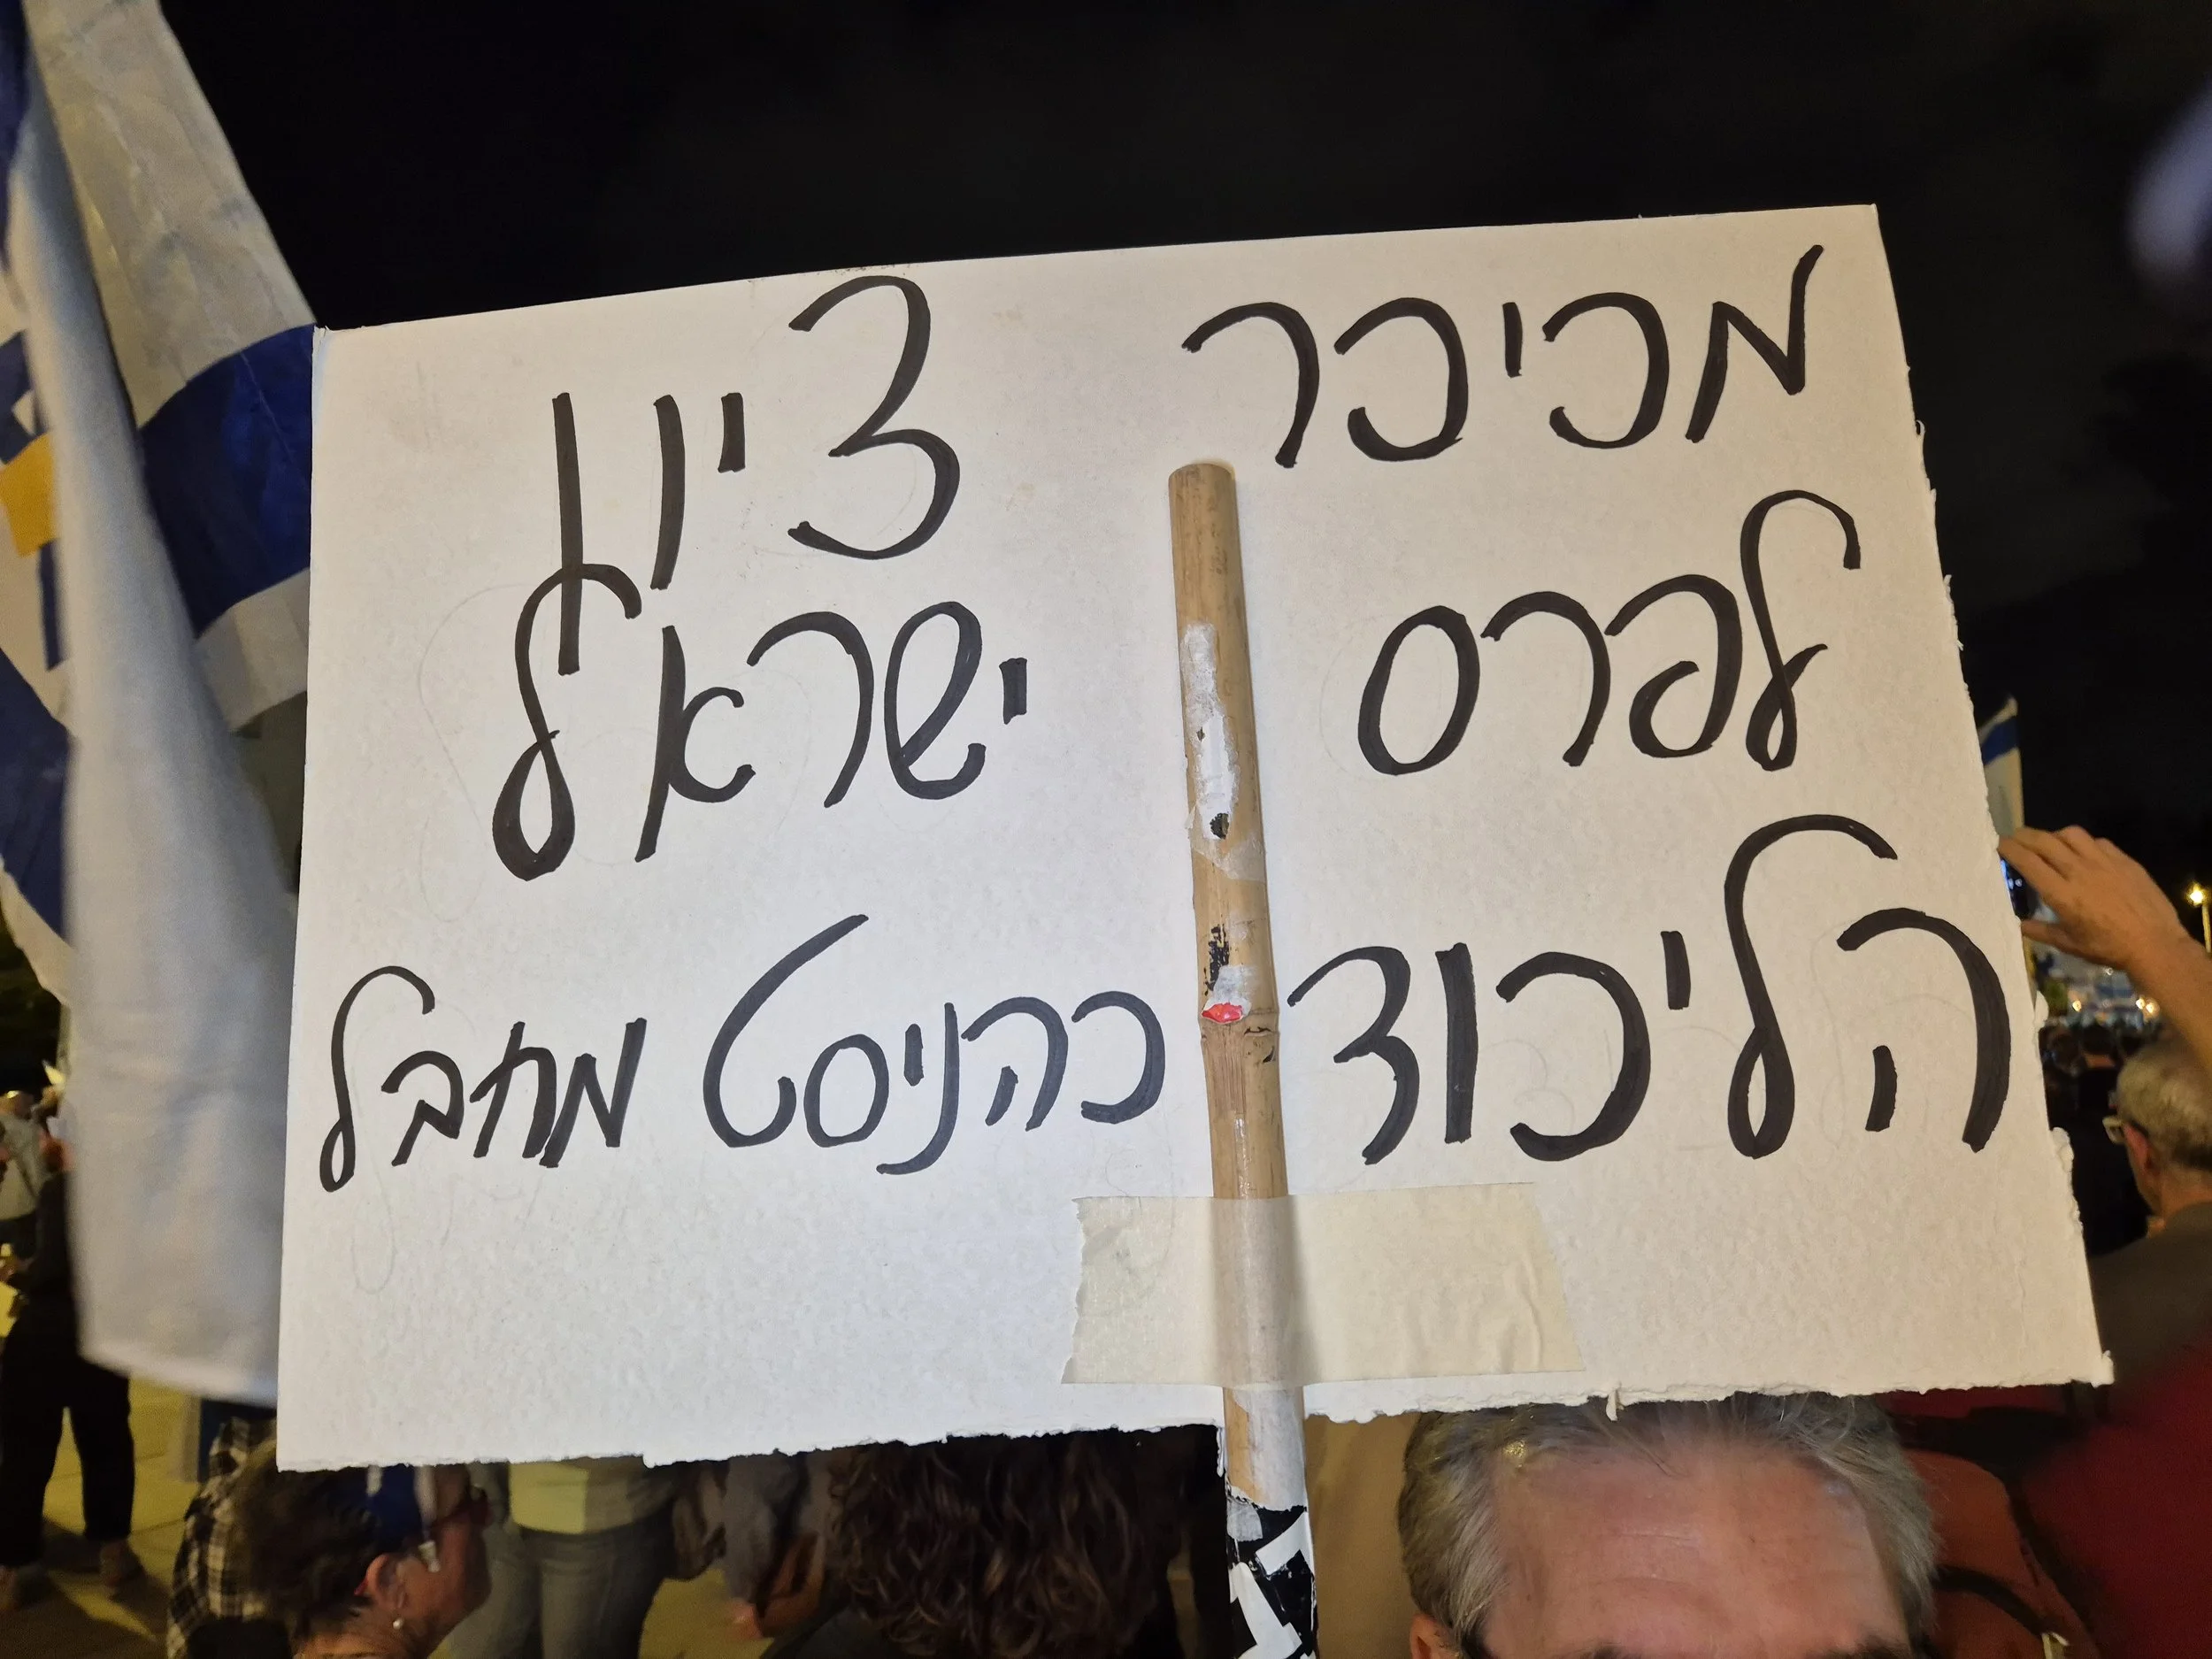 מכיכר ציון
לפרס ישראל
הליכוד כהניסט מחבל